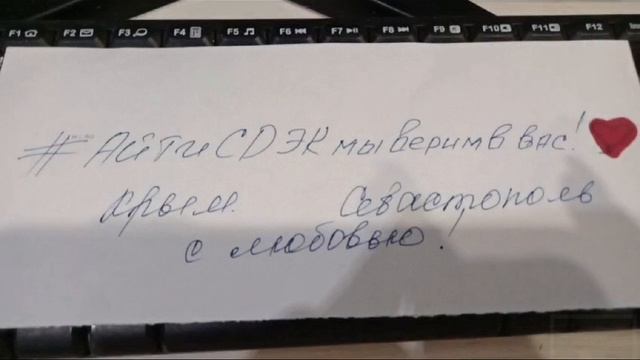 F1 F2 F3 F4 F5 F6 F7 F8 F9 F10 F11 F12
#АйТиСДЭКмыверимввас!
Крым. Севастополь
с любовью.